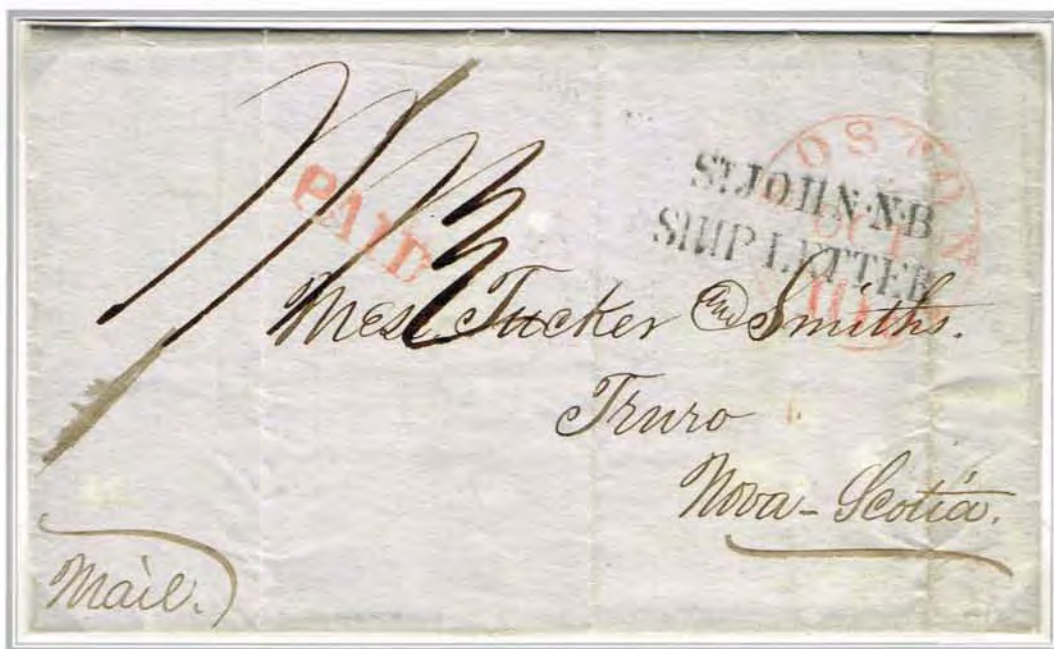 1/3
PAID
BOSTON
OCT
10
ST JOHN·N·B
SHIP LETTER
Mess. Tucker and Smiths.
Truro
Nova-Scotia.
Mail.